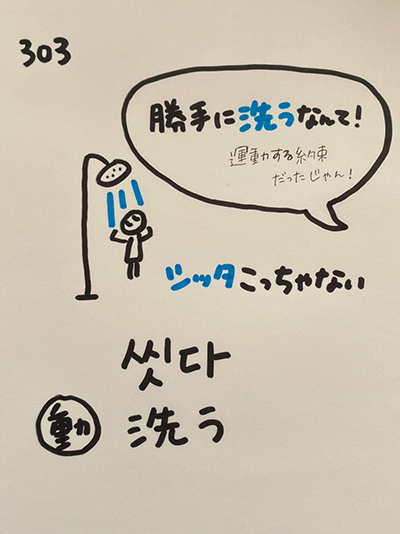 303
勝手に洗うなんて!
運動する約束
だったじゃん!
シッタこっちゃない
씻다
動 洗う